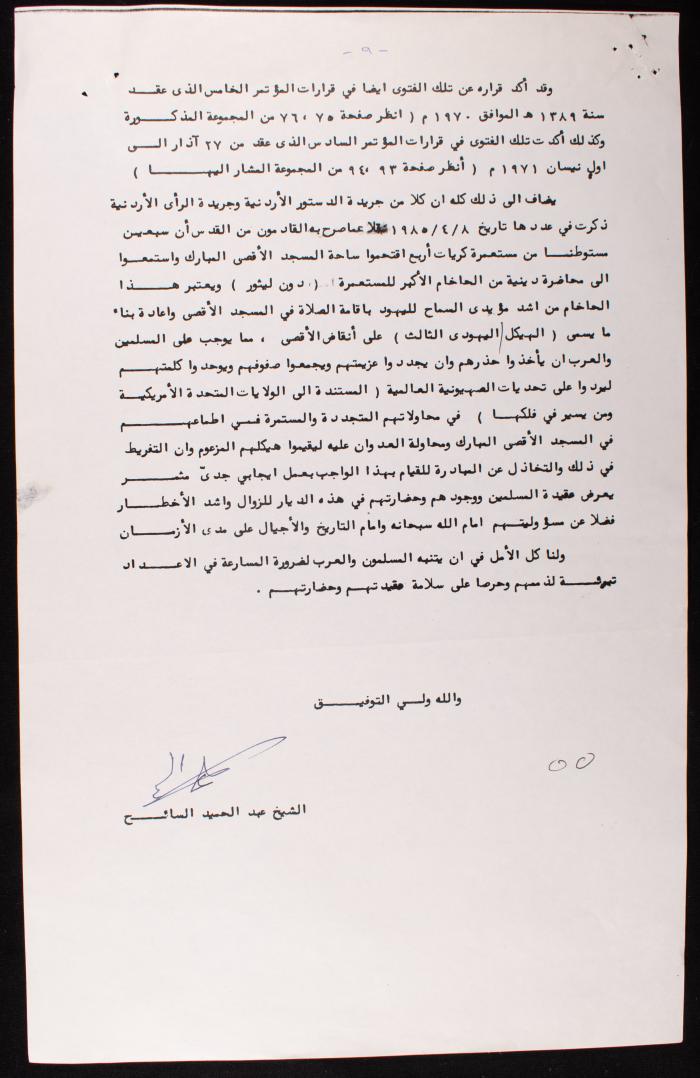 - ٩ -
وقد أكد قراره عن تلك الفتوى ايضا في قرارات المؤتمر الخامس الذى عقد
سنة ١٣٨٩ هـ الموافق ١٩٧٠ م ( انظر صفحة ٧٥ ، ٧٦ من المجموعة المذكورة
وكذلك أكدت تلك الفتوى في قرارات المؤتمر السادس الذى عقد من ٢٧ آذار الى
اول نيسان ١٩٧١ م ( أنظر صفحة ٩٣ ، ٩٤ من المجموعة المشار اليها )
يضاف الى ذلك كله ان كلا من جريدة الدستور الأردنية وجريدة الرأى الأردنية
ذكرت في عددها تاريخ ١٩٨٥/٤/٨ نقلا عما صرح به القادمون من القدس أن سبعين
مستوطنا من مستعمرة كريات أربع اقتحموا ساحة المسجد الأقصى المبارك واستمعوا
الى محاضرة دينية من الحاخام الأكبر للمستعمرة ( دون ليئور ) ويعتبر هذا
الحاخام من اشد مؤيدى السماح لليهود باقامة الصلاة في المسجد الأقصى واعادة بناء
ما يسمى ( الهيكل اليهودى الثالث ) على أنقاض الأقصى ، مما يوجب على المسلمين
والعرب ان يأخذوا حذرهم وان يجددوا عزيمتهم ويجمعوا صفوفهم ويوحدوا كلمتهم
ليردوا على تحديات الصهيونية العالمية ( المستندة الى الولايات المتحدة الأمريكية
ومن يسير في فلكها ) في محاولاتهم المتجددة والمستمرة فـي اطماعهم
في المسجد الأقصى المبارك ومحاولة العدوان عليه ليقيموا هيكلهم المزعوم وان التفريط
في ذلك والتخاذل عن المبادرة للقيام بهذا الواجب بعمل ايجابي جدىّ مثمر
يعرض عقيدة المسلمين ووجودهم وحضارتهم في هذه الديار للزوال واشد الأخطار
فضلا عن مسؤوليتهم امام الله سبحانه وامام التاريخ والأجيال على مدى الأزمان
ولنا كل الأمل في ان يتنبه المسلمون والعرب لضرورة المسارعة في الاعداد
تبرئة لذممهم وحرصا على سلامة عقيدتهم وحضارتهم .
والله ولي التوفيق
٥٥
الشيخ عبد الحميد السائح